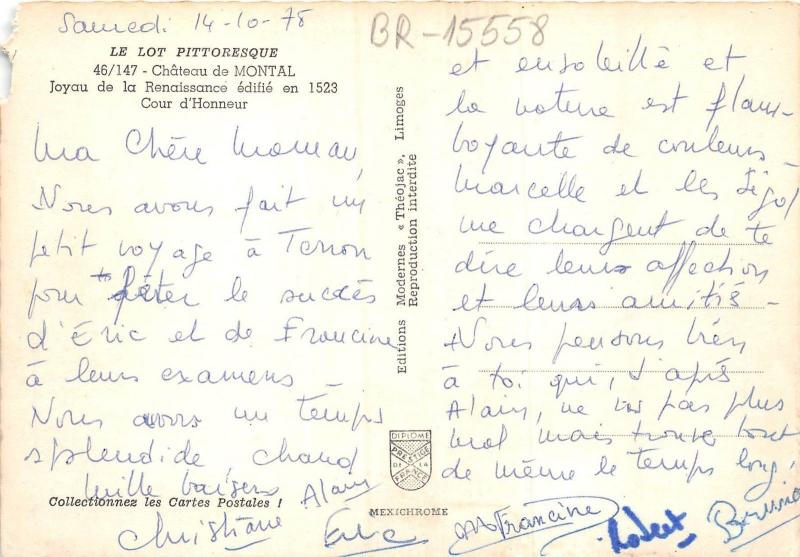 Samedi 14-10-78
BR-15558
LE LOT PITTORESQUE
46/147 - Château de MONTAL
Joyau de la Renaissance édifié en 1523
Cour d'Honneur
Ma Chère Maman,
Nous avons fait un
petit voyage à
pour fêter le succès
d'Eric et de Francine
à leurs examens -
Nous avons un temps
splendide chaud
et ensoleillé et
la nature est flam-
boyante de couleurs -
Marcelle et les
me chargent de te
dire leurs affection
et leurs amitiés -
Nous pensons très
à toi qui, d'après
Alain, ne vas pas plus
mal mais trouves tout
de même le temps long.
Mille baisers Alain
Christiane Eric Francine Robert Bruno
Collectionnez les Cartes Postales !
Editions Modernes « Théojac », Limoges
Reproduction interdite
DIPLOME
PRESTIGE
DE LA
FRANCE
MEXICHROME